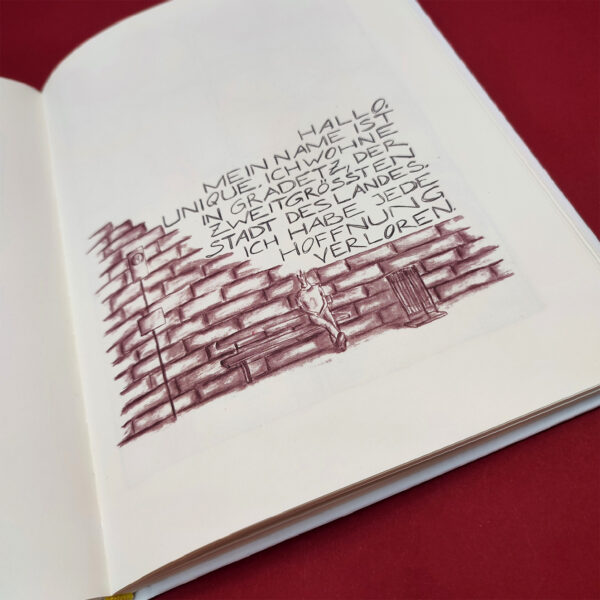 HALLO.
MEIN NAME IST
UNIQUE. ICH WOHNE
IN GRADETZ, DER
ZWEITGRÖSSTEN
STADT DES LANDES.
ICH HABE JEDE
HOFFNUNG
VERLOREN.